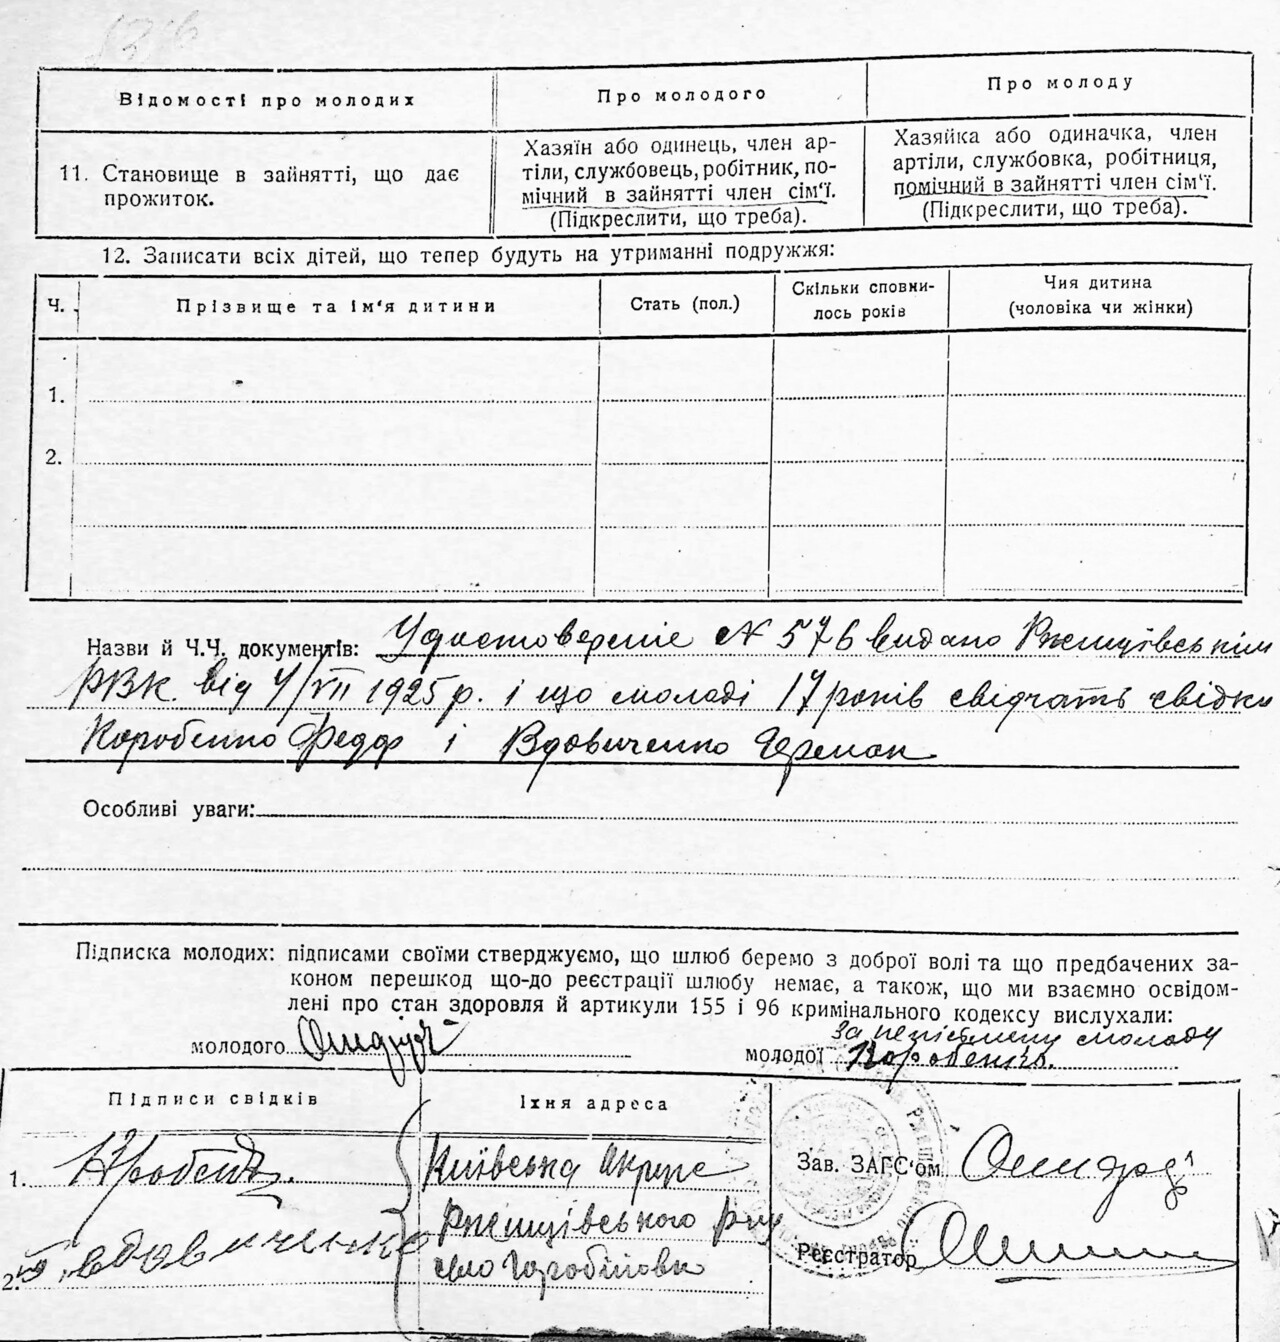 Відомості про молодих
Про молодого
Про молоду
11. Становище в зайнятті, що дає
прожиток.
Хазяїн або одинець, член ар-
тіли, службовець, робітник, по-
мічний в зайнятті член сім'ї.
(Підкреслити, що треба).
Хазяйка або одиначка, член
артіли, службовка, робітниця,
помічний в зайнятті член сім'ї.
(Підкреслити, що треба).
12. Записати всіх дітей, що тепер будуть на утриманні подружжя:
Ч.
Прізвище та ім'я дитини
Стать (пол.)
Скільки сповни-
лось років
Чия дитина
(чоловіка чи жінки)
1.
2.
Назви й Ч.Ч. документів: Удостоверніє № 576 видано Ржищівським
РВК. від 4/VII 1925 р. і що молоді 17 років свідчать свідки
Коробенко Федір і Вдовиченко Герман
Особливі уваги:
Підписка молодих: підписами своїми стверджуємо, що шлюб беремо з доброї волі та що предбачених за-
коном перешкод що-до реєстрації шлюбу немає, а також, що ми взаємно освідом-
лені про стан здоровля й артикули 155 і 96 кримінального кодексу вислухали:
молодого
за неписьменну молоду
молодої Коробенко.
Підписи свідків
Їхня адреса
1. Коробенко
Київська Округа
Ржищівського р-ну
село
2. Вдовиченко
Зав. ЗАГС'ом
Реєстратор